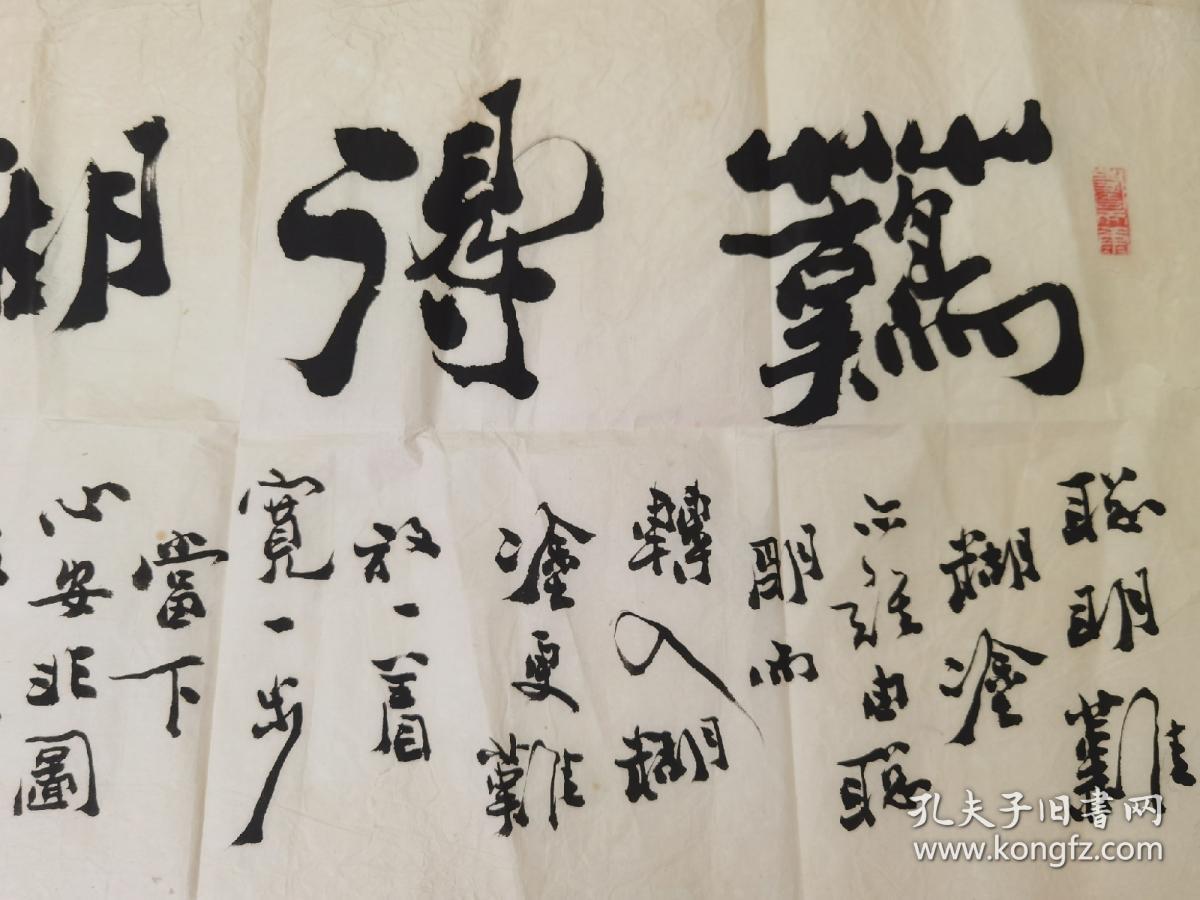 難得
聰明難
糊塗
亦難由聰
明而
轉入糊
塗更難
放一着
寬一步
當下
心安非圖
孔夫子旧书网
www.kongfz.com